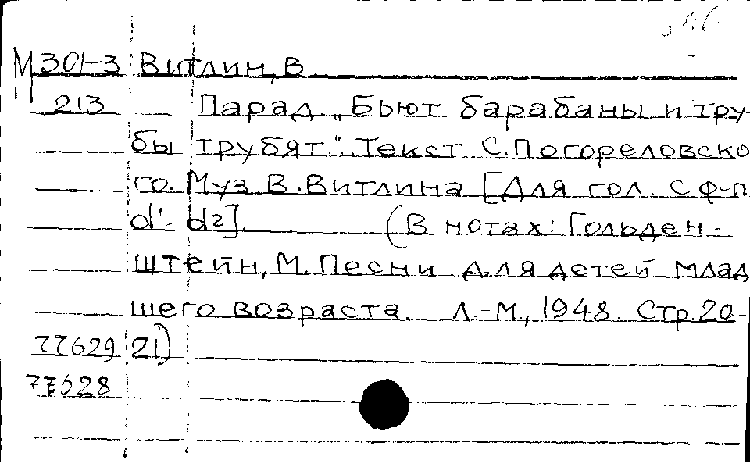 М 301-3 Витлин, В.
213 Парад. „Бьют барабаны и тру-
бы трубят". Текст С. Погореловско-
го. Муз В. Витлина [Для гол. с ф-п
d'- d2]. (В нотах: Гольден-
штейн, М. Песни для детей млад
шего возраста. Л.-М., 1948. Стр. 20-
77629 21)
77628